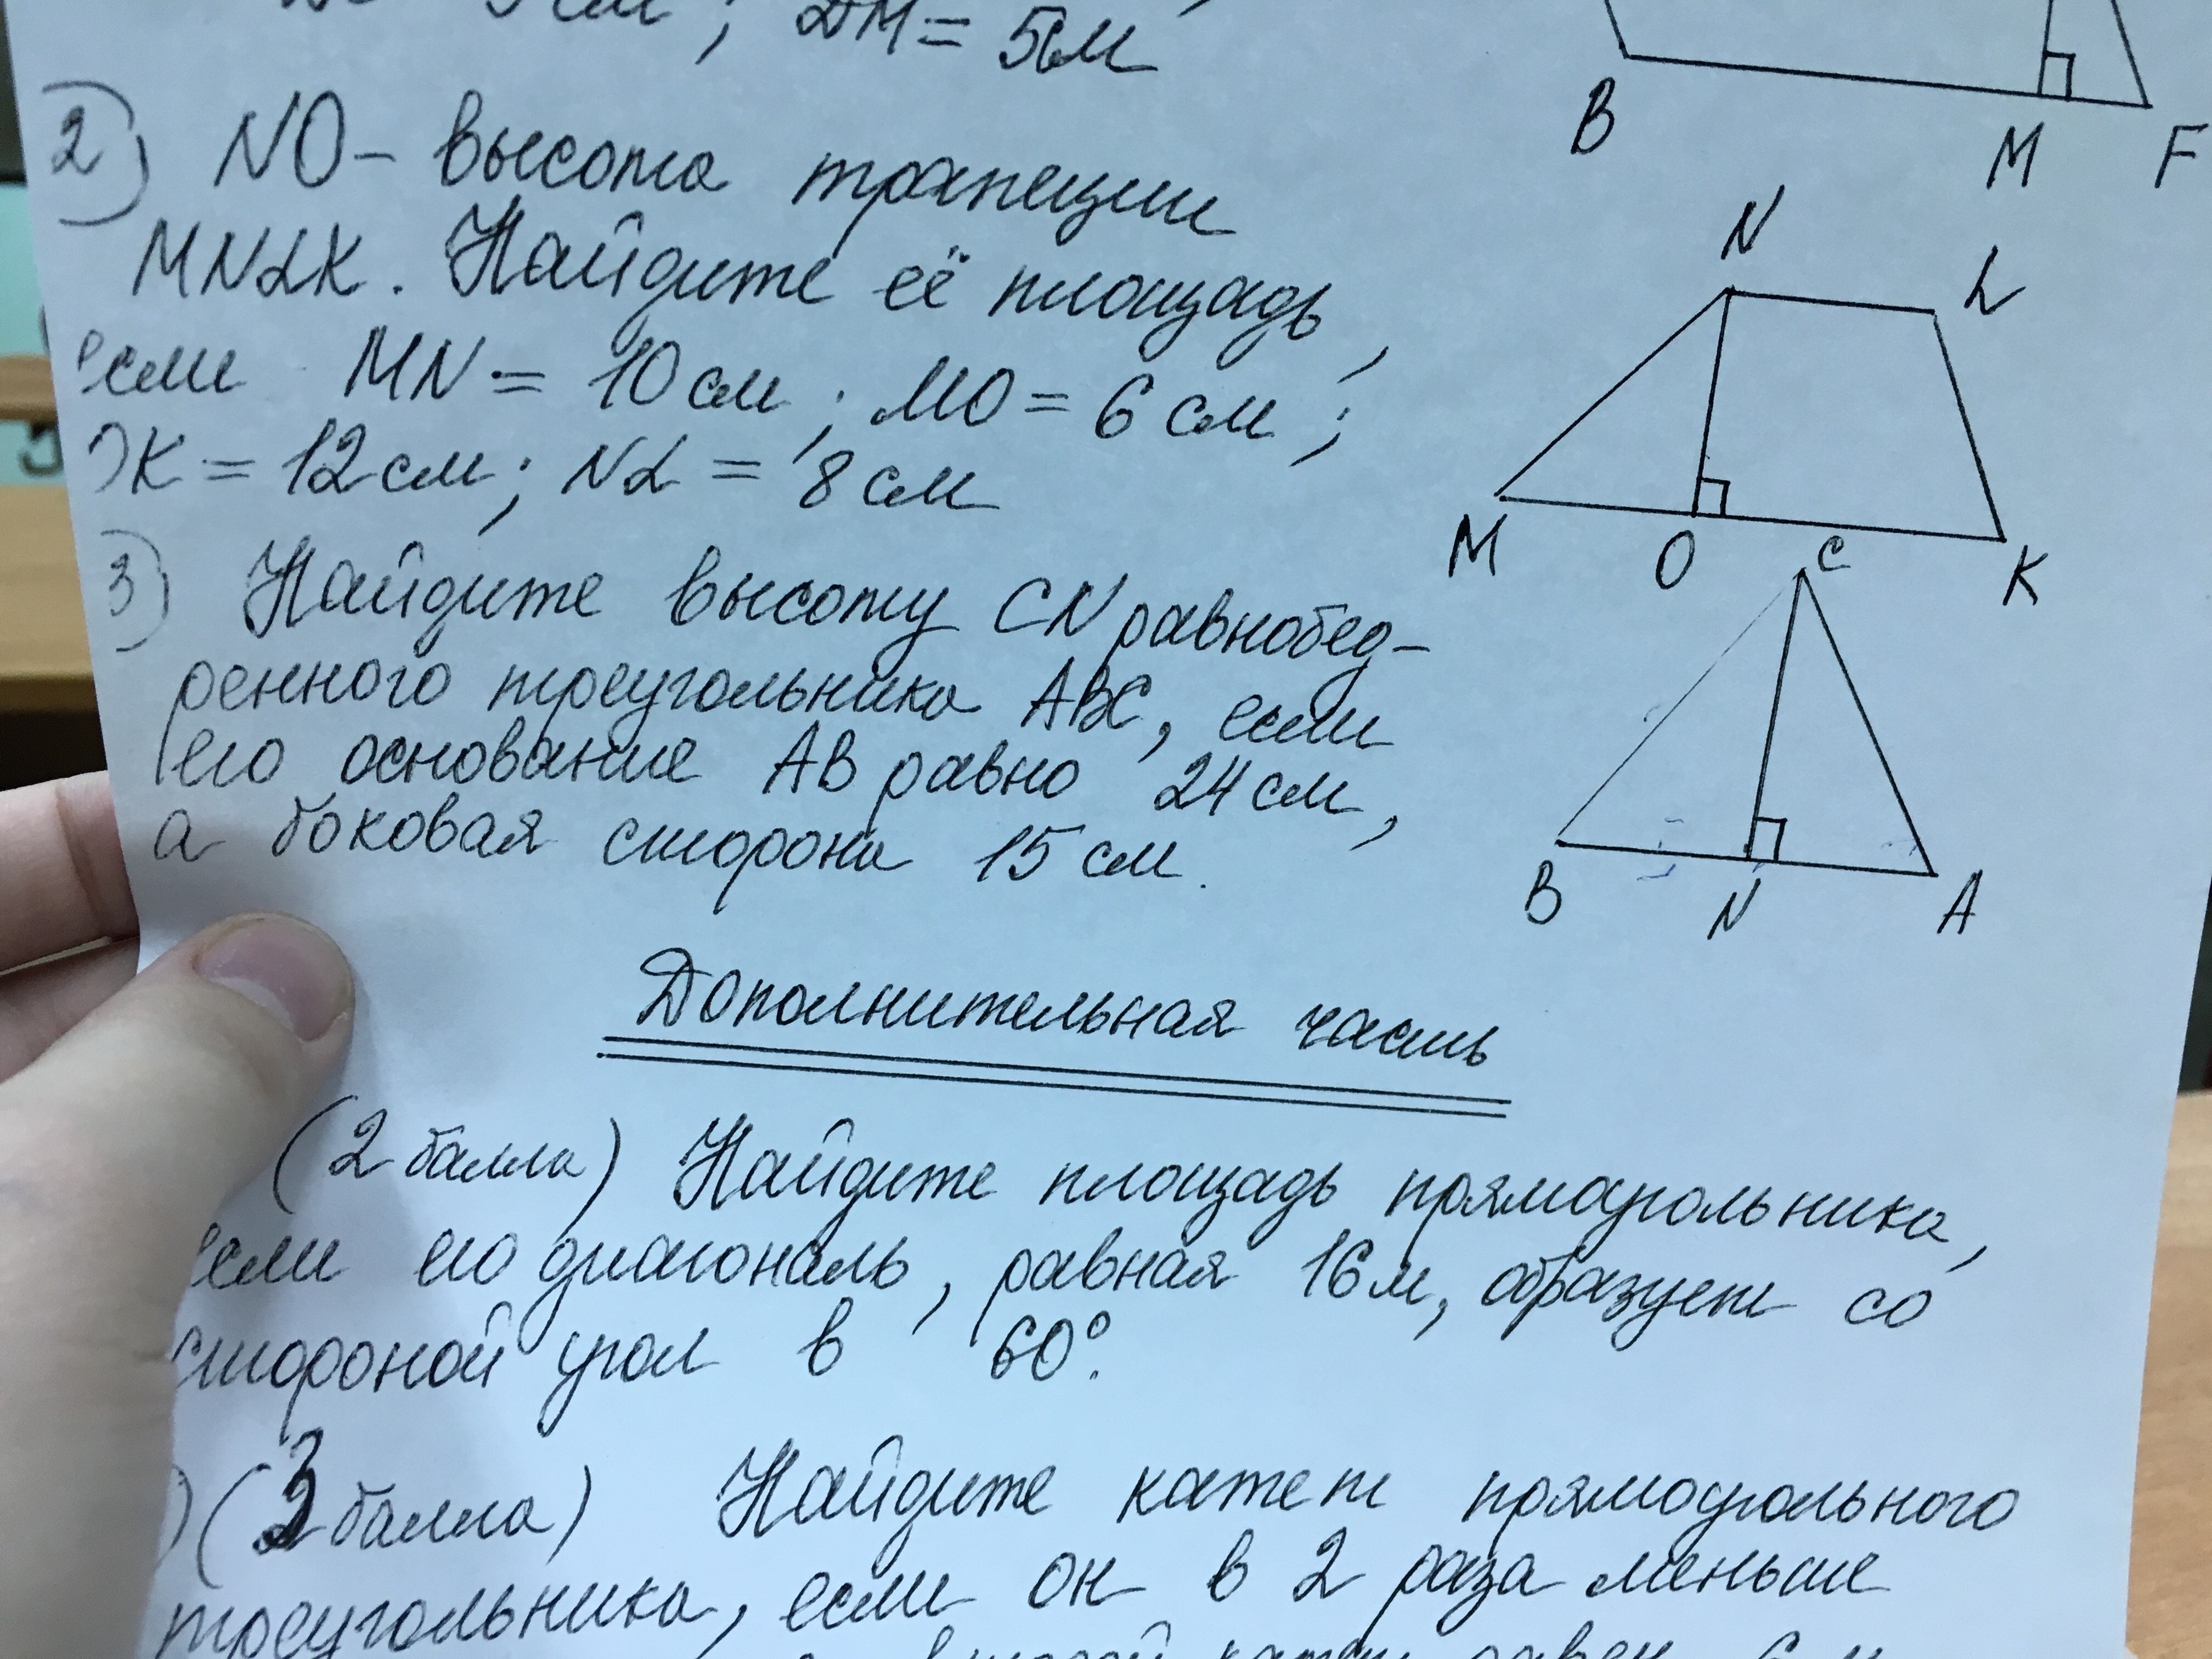 см; DM = 5см
B
M
F
2) NO – высота трапеции
MNLK. Найдите её площадь,
если MN = 10 см; MO = 6 см;
OK = 12 см; NL = 8 см
N
L
M
O
K
3) Найдите высоту CN равнобед-
ренного треугольника ABC, если
его основание AB равно 24 см,
а боковая сторона 15 см.
C
B
N
A
Дополнительная часть
(2 балла) Найдите площадь прямоугольника,
если его диагональ, равная 16 м, образует со
стороной угол в 60°.
) (3 балла) Найдите катет прямоугольного
треугольника, если он в 2 раза меньше
второй катет равен 6 м